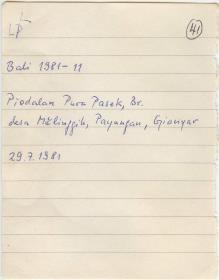 LP
41
Bali 1981-11
Piodalan Pura Pasek, Br.
desa Mĕlinggih, Payangan, Gianyar
29.7.1981